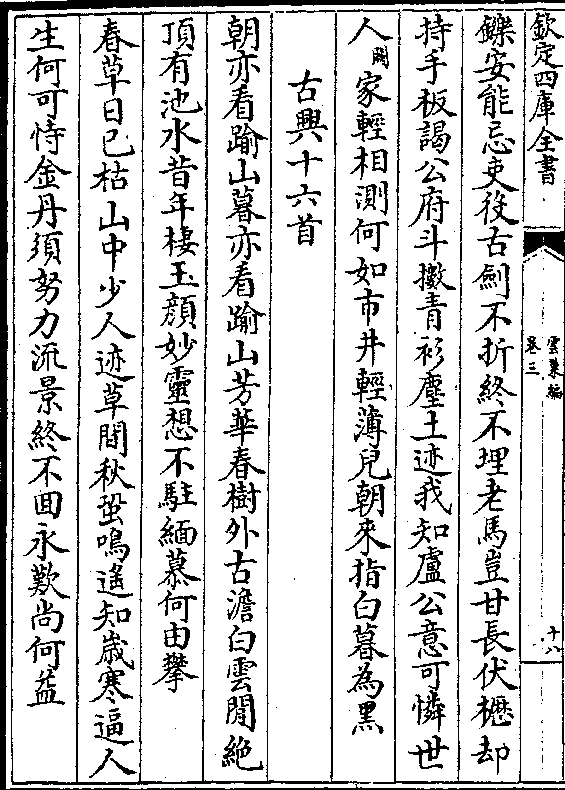 欽定四庫全書
雲巢編
卷三
十八
鑠安能忌吏役古劍不折終不埋老馬豈甘長伏櫪却
持手板謁公府斗擻青衫塵土迹我知盧公意可憐世
人闕家輕相測何如市井輕薄兒朝來指白暮為黑
古興十六首
朝亦看踰山暮亦看踰山芳華春樹外古澹白雲間絶
頂有池水昔年棲玉顔妙靈想不駐緬慕何由攀
春草日已枯山中少人迹草間秋蛩鳴遙知歳寒逼人
生何可恃金丹須努力流景終不回永歎尚何益